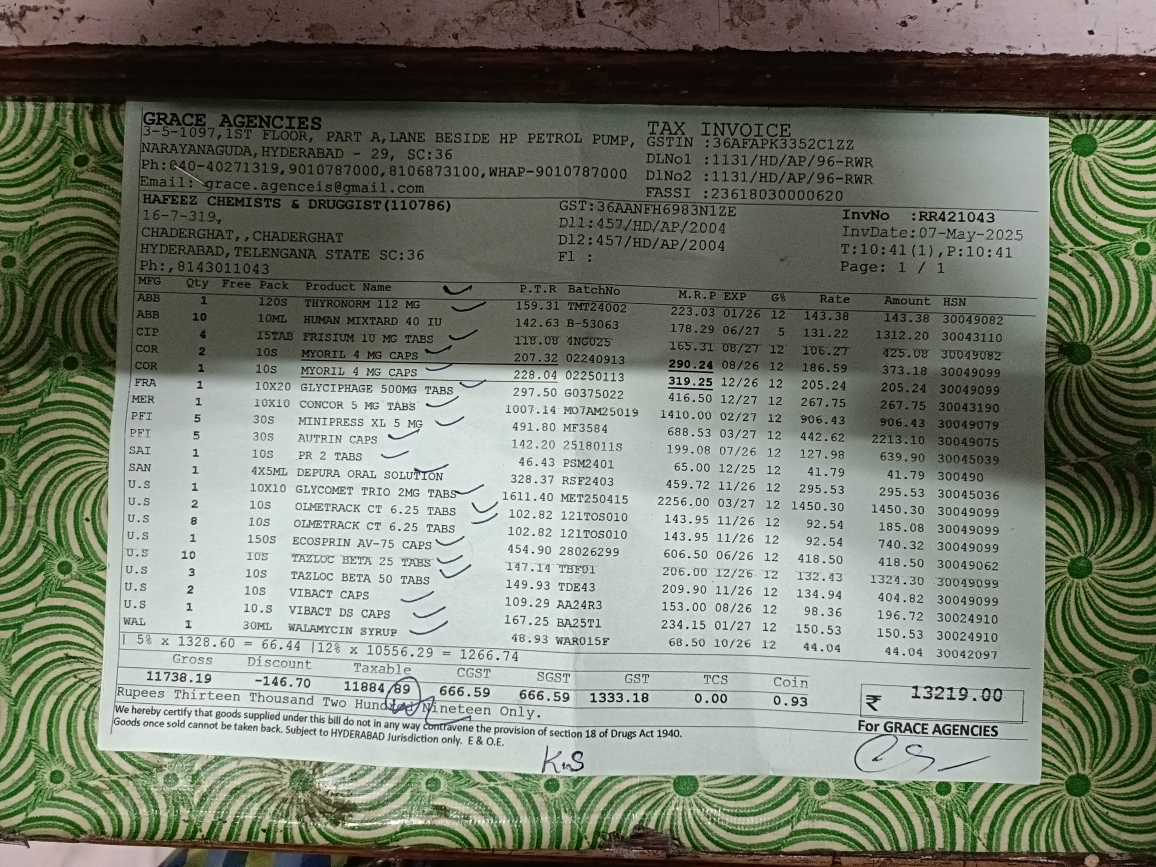 GRACE AGENCIES
3-5-1097,1ST FLOOR, PART A,LANE BESIDE HP PETROL PUMP,
NARAYANAGUDA,HYDERABAD - 29, SC:36
Ph:040-40271319,9010787000,8106873100,WHAP-9010787000
Email: grace.agenceis@gmail.com
TAX INVOICE
GSTIN :36AFAPK3352C1ZZ
DLNo1 :1131/HD/AP/96-RWR
DlNo2 :1131/HD/AP/96-RWR
FASSI :23618030000620
HAFEEZ CHEMISTS & DRUGGIST(110786)
16-7-319,
CHADERGHAT,,CHADERGHAT
HYDERABAD,TELENGANA STATE SC:36
Ph:,8143011043
GST:36AANFH6983N1ZE
Dl1:457/HD/AP/2004
Dl2:457/HD/AP/2004
Fl :
InvNo :RR421043
InvDate:07-May-2025
T:10:41(1),P:10:41
Page: 1 / 1
MFG Qty Free Pack Product Name P.T.R BatchNo M.R.P EXP G% Rate Amount HSN
ABB 1 120S THYRONORM 112 MG 159.31 TMT24002 223.03 01/26 12 143.38 143.38 30049082
ABB 10 10ML HUMAN MIXTARD 40 IU 142.63 B-53063 178.29 06/27 5 131.22 1312.20 30043110
CIP 4 15TAB FRISIUM 10 MG TABS 118.08 4NG025 165.31 08/27 12 106.27 425.08 30049082
COR 2 10S MYORIL 4 MG CAPS 207.32 02240913 290.24 08/26 12 186.59 373.18 30049099
COR 1 10S MYORIL 4 MG CAPS 228.04 02250113 319.25 12/26 12 205.24 205.24 30049099
FRA 1 10X20 GLYCIPHAGE 500MG TABS 297.50 G0375022 416.50 12/27 12 267.75 267.75 30043190
MER 1 10X10 CONCOR 5 MG TABS 1007.14 MO7AM25019 1410.00 02/27 12 906.43 906.43 30049079
PFI 5 30S MINIPRESS XL 5 MG 491.80 MF3584 688.53 03/27 12 442.62 2213.10 30049075
PFI 5 30S AUTRIN CAPS 142.20 2518011S 199.08 07/26 12 127.98 639.90 30045039
SAI 1 10S PR 2 TABS 46.43 PSM2401 65.00 12/25 12 41.79 41.79 300490
SAN 1 4X5ML DEPURA ORAL SOLUTION 328.37 RSF2403 459.72 11/26 12 295.53 295.53 30045036
U.S 1 10X10 GLYCOMET TRIO 2MG TABS 1611.40 MET250415 2256.00 03/27 12 1450.30 1450.30 30049099
U.S 2 10S OLMETRACK CT 6.25 TABS 102.82 121TOS010 143.95 11/26 12 92.54 185.08 30049099
U.S 8 10S OLMETRACK CT 6.25 TABS 102.82 121TOS010 143.95 11/26 12 92.54 740.32 30049099
U.S 1 150S ECOSPRIN AV-75 CAPS 454.90 28026299 606.50 06/26 12 418.50 418.50 30049062
U.S 10 10S TAZLOC BETA 25 TABS 147.14 TBF01 206.00 12/26 12 132.43 1324.30 30049099
U.S 3 10S TAZLOC BETA 50 TABS 149.93 TDE43 209.90 11/26 12 134.94 404.82 30049099
U.S 2 10S VIBACT CAPS 109.29 AA24R3 153.00 08/26 12 98.36 196.72 30024910
U.S 1 10.S VIBACT DS CAPS 167.25 BA25T1 234.15 01/27 12 150.53 150.53 30024910
WAL 1 30ML WALAMYCIN SYRUP 48.93 WAR015F 68.50 10/26 12 44.04 44.04 30042097
| 5% x 1328.60 = 66.44 |12% x 10556.29 = 1266.74
Gross Discount Taxable CGST SGST GST TCS Coin
11738.19 -146.70 11884.89 666.59 666.59 1333.18 0.00 0.93 ₹ 13219.00
Rupees Thirteen Thousand Two Hundred Nineteen Only.
We hereby certify that goods supplied under this bill do not in any way contravene the provision of section 18 of Drugs Act 1940.
Goods once sold cannot be taken back. Subject to HYDERABAD Jurisdiction only. E & O.E.
For GRACE AGENCIES